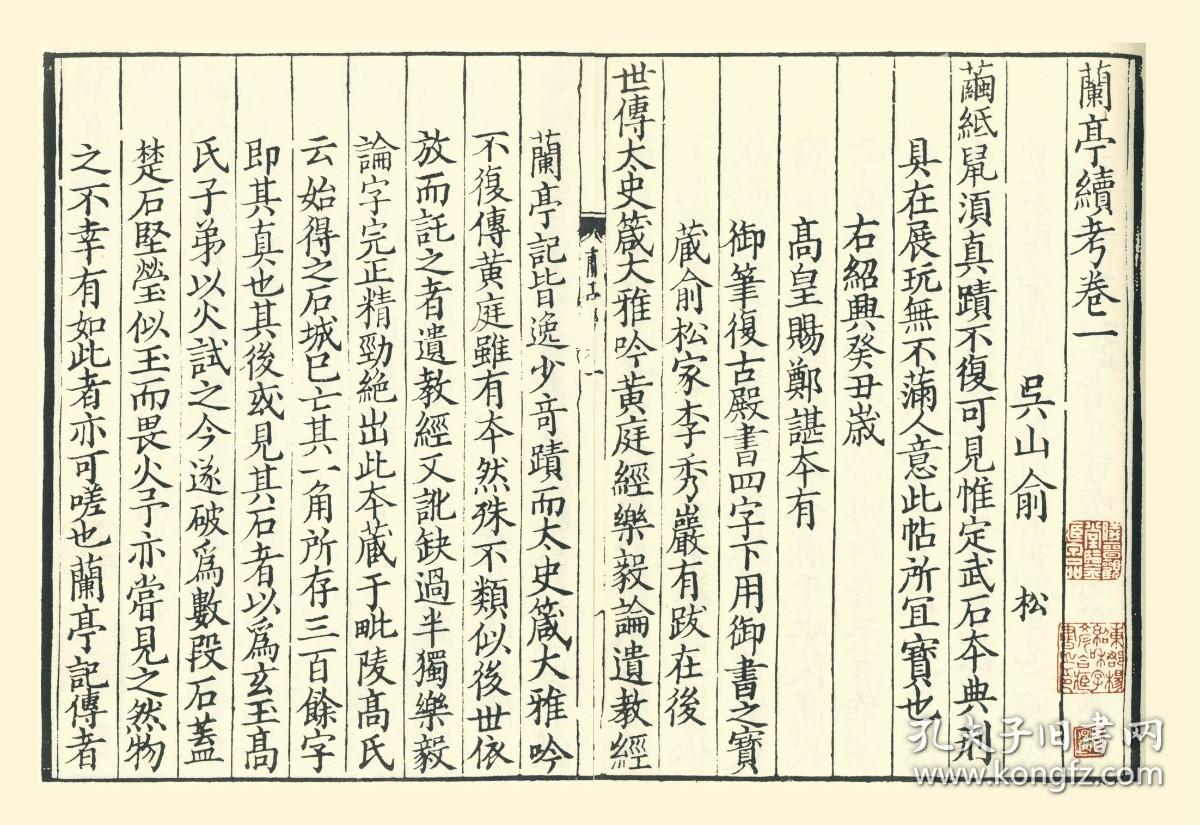 蘭亭續考卷一
吳山俞 松
繭紙鼠湏真蹟不復可見惟定武石本典刑
具在展玩無不滿人意此帖所宜寶也
右紹興癸丑歲
高皇賜鄭諶本有
御筆復古殿書四字下用御書之寶
蔵俞松家李秀巖有跋在後
世傳太史箴大雅吟黃庭經樂毅論遺教經
蘭亭記皆逸少竒蹟而大史箴大雅吟
不復傳黃庭雖有本然殊不類似後世依
放而託之者遺教經又訛缺過半獨樂毅
論字完正精勁絕出此本蔵于毗陵髙氏
云始得之石城已亡其一角所存三百餘字
即其真也其後或見其石者以爲玄玉髙
氏子弟以火試之今遂破爲數段石蓋
楚石堅瑩似玉而畏火予亦嘗見之然物
之不幸有如此者亦可嗟也蘭亭記傳者
孔夫子旧書网
www.kongfz.com